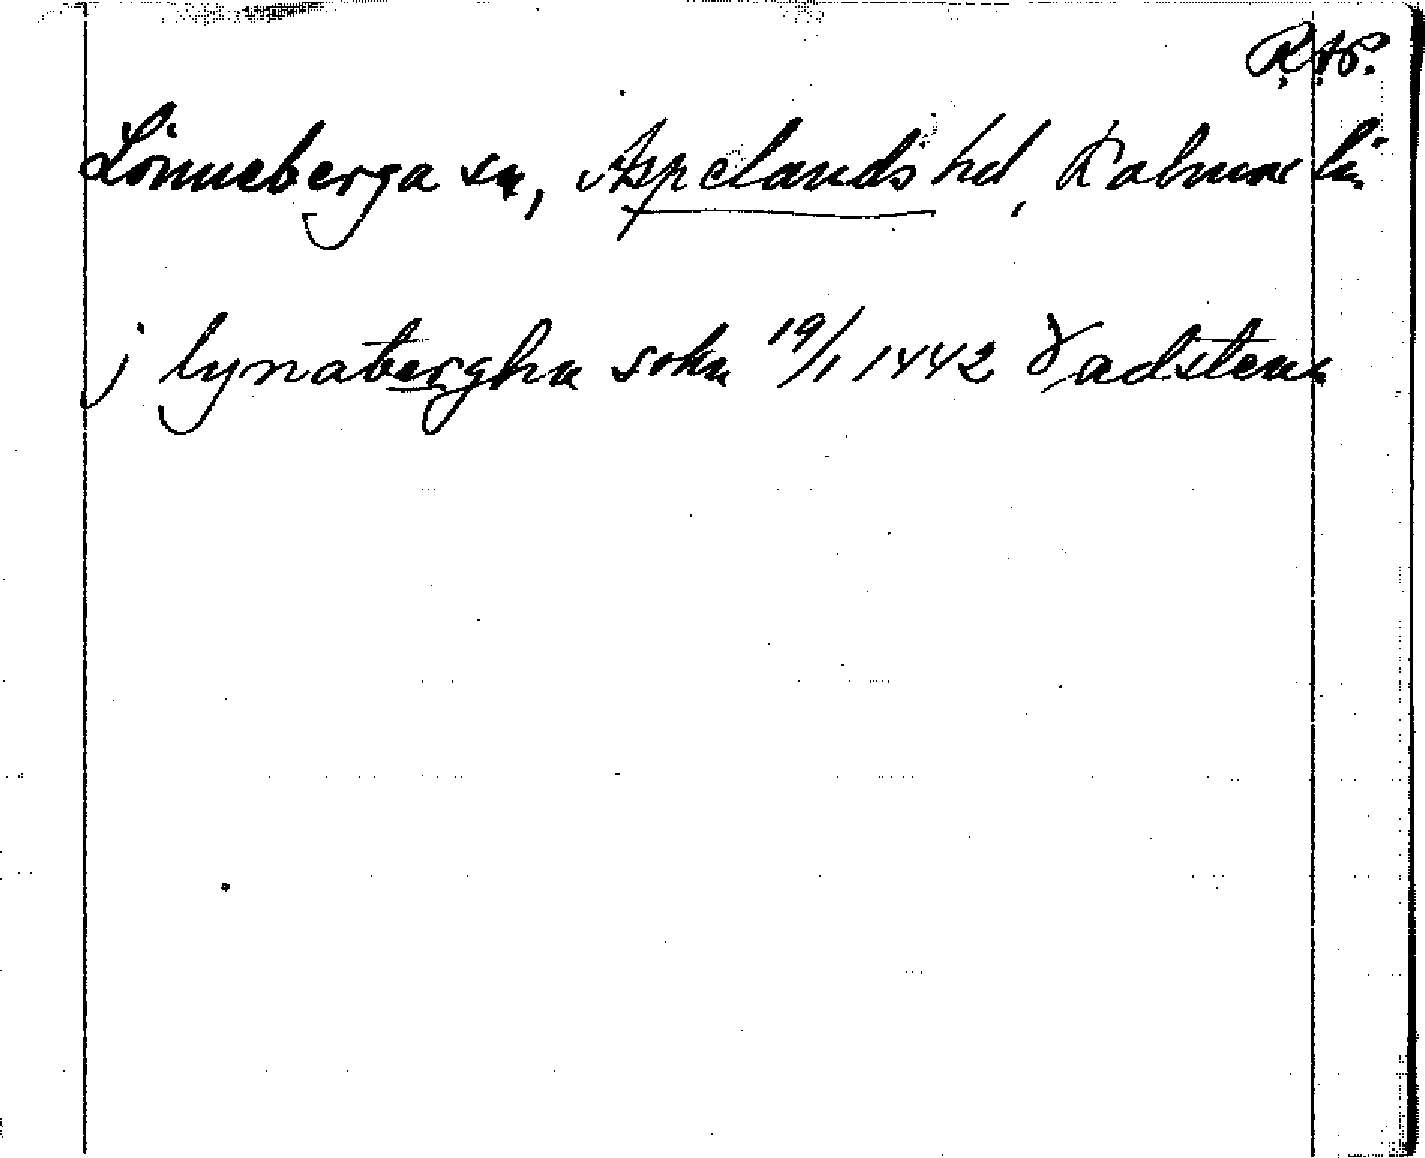 R.A.P.
Lönneberga sn, Aspelands hd, Kalmar län
j lynabergha sokn 19/1 1442 Vadstena